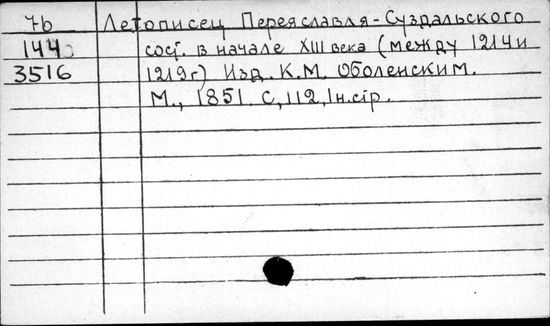 7b Летописец Переяславля-Суздальского
144 сост. в начале XIII века (между 1214 и
3516 1219г) Изд. К.М. Оболенским.
М., 1851. С, 112, 1н.стр.